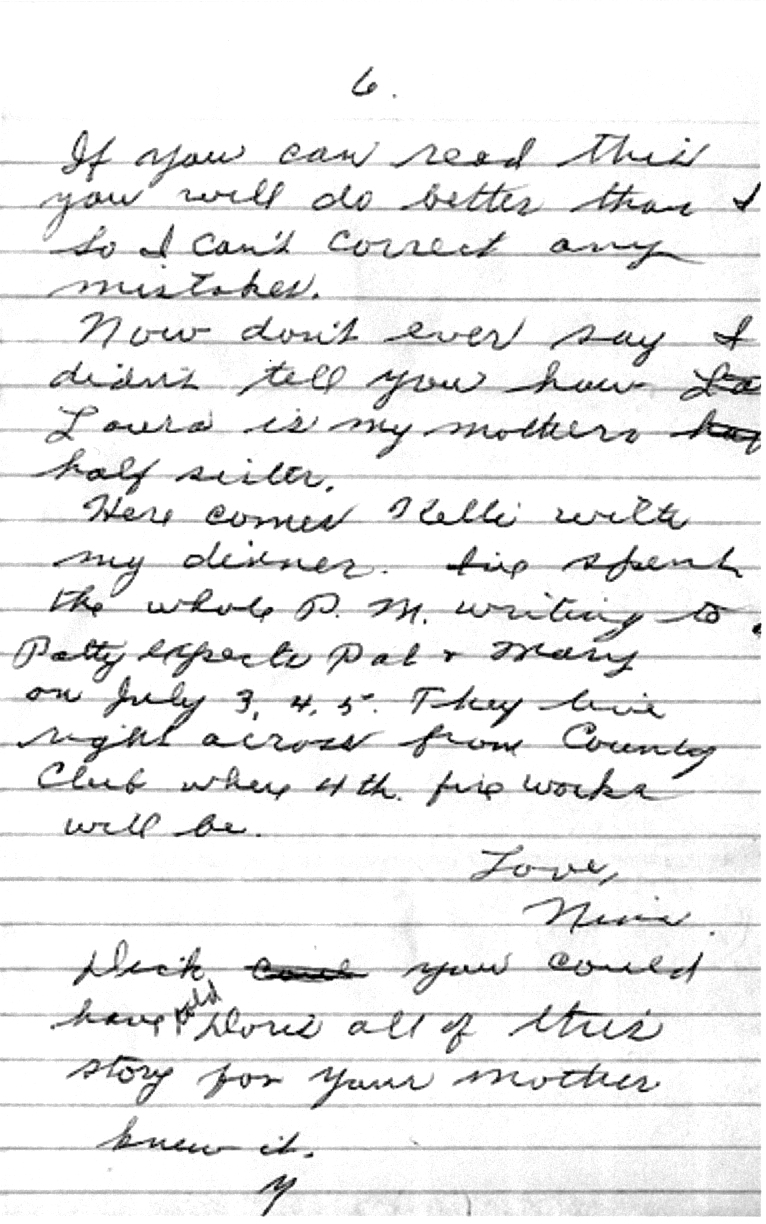 6.
If you can read this
you will do better than I
so I can't correct any
mistakes.
Now don't ever say I
didn't tell you how La
Laura is my mothers
half sister.
Here comes Kelli with
my dinner. I've spent
the whole P. M. writing to
Patty expects Pat & Mary
on July 3, 4, 5. They live
right across from County
Club where 4th. fire works
will be.
Love,
Nina.
Dick you could
have told Doris all of this
story for your mother
knew it.